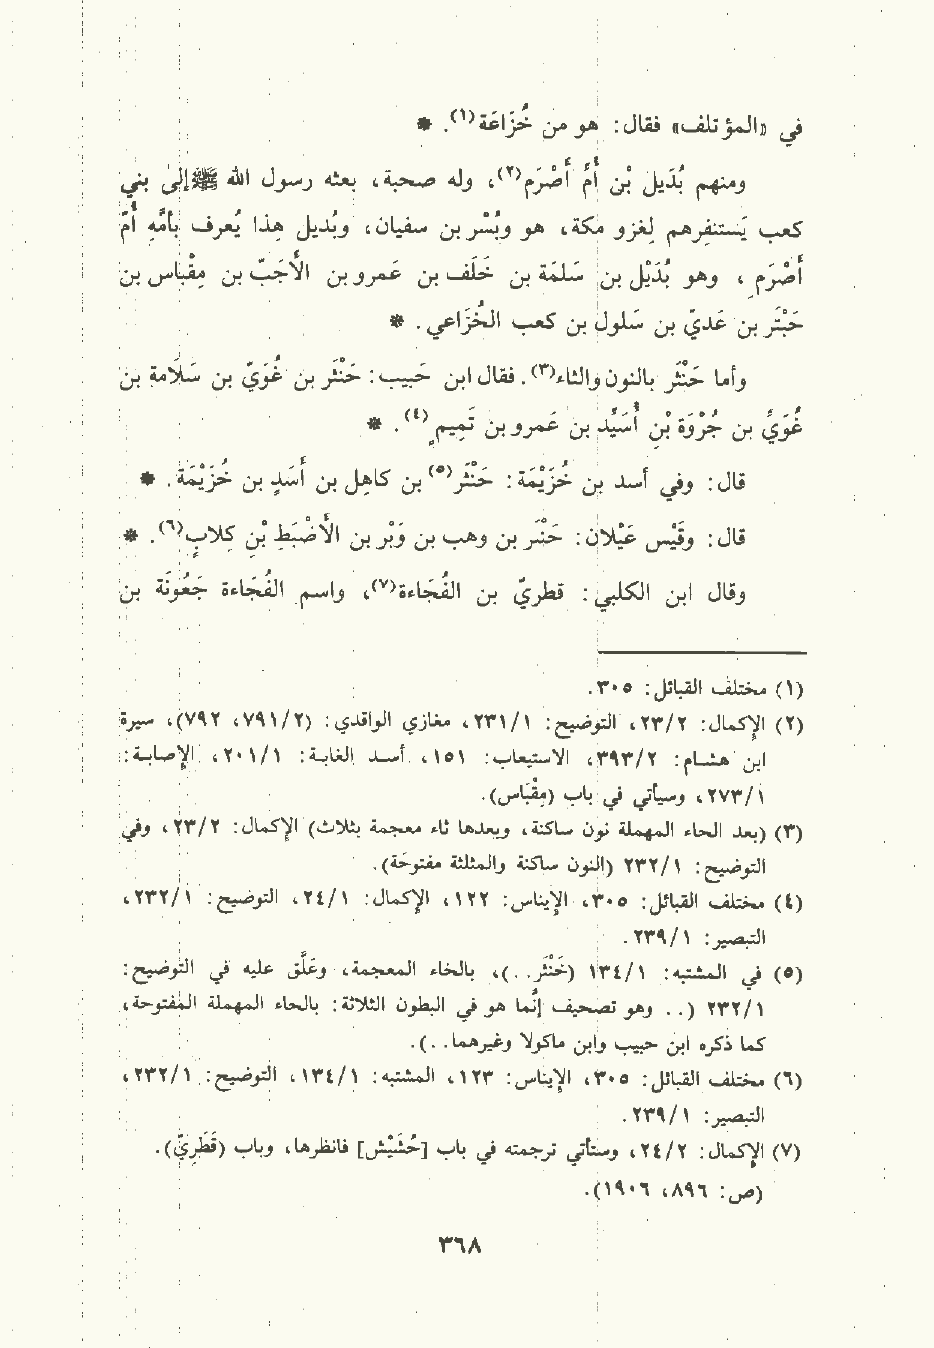 في «المؤتلف» فقال: هو من خُزَاعَة(١). *
ومنهم بُدَيل بنُ أمِّ أَصْرَم(٢)، وله صحبة، بعثه رسول الله ﷺ إلى بني
كعب يَستنفِرهم لِغزو مكة، هو وبُسْر بن سفيان، وبُديل هذا يُعرف بأمِّهِ أمِّ
أَصْرَمٍ، وهو بُدَيْل بن سَلمَة بن خَلَف بن عَمرو بن الأجَبِّ بن مِقْباس بن
حَبْتَر بن عَديّ بن سَلول بن كعب الخُزاعي. *
وأما حَنْثَر بالنون والثاء(٣). فقال ابن حَبيب: حَنْثَر بن غُوَيّ بن سَلاَمة بن
غُوَيِّ بن جُرْوَة بنِ أُسَيِّد بن عَمرو بن تَميمٍ(٤). *
قال: وفي أسد بن خُزَيْمَة: حَنْثَر(٥) بن كاهِل بن أَسَدِ بن خُزَيْمَة. *
قال: وقَيْس عَيْلان: حَنْثَر بن وهب بن وَبْر بن الأَضْبَطِ بنِ كِلابٍ(٦). *
وقال ابن الكلبي: قطريّ بن الفُجَاءة(٧)، واسم الفُجَاءة جَعُونَة بن
(١) مختلف القبائل: ٣٠٥.
(٢) الإكمال: ٢٣/٢، التوضيح: ٢٣١/١، مغازي الواقدي: (٧٩١/٢، ٧٩٢)، سيرة
ابن هشام: ٣٩٣/٢، الاستيعاب: ١٥١، أسد الغابة: ٢٠١/١، الإصابة:
٢٧٣/١، وسيأتي في باب (مِقْبَاس).
(٣) (بعد الحاء المهملة نون ساكنة، وبعدها ثاء معجمة بثلاث) الإكمال: ٢٣/٢، وفي
التوضيح: ٢٣٢/١ (النون ساكنة والمثلثة مفتوحَة).
(٤) مختلف القبائل: ٣٠٥، الإيناس: ١٢٢، الإكمال: ٢٤/١، التوضيح: ٢٣٢/١،
التبصير: ٢٣٩/١.
(٥) في المشتبه: ١٣٤/١ (خَنْثَر..)، بالخاء المعجمة، وعَلَّق عليه في التوضيح:
٢٣٢/١ (.. وهو تصحيف إنَّما هو في البطون الثلاثة: بالحاء المهملة المفتوحة،
كما ذكره ابن حبيب وابن ماكولا وغيرهما..).
(٦) مختلف القبائل: ٣٠٥، الإيناس: ١٢٣، المشتبه: ١٣٤/١، التوضيح: ٢٣٢/١،
التبصير: ٢٣٩/١.
(٧) الإكمال: ٢٤/٢، وستأتي ترجمته في باب [حُشَيْش] فانظرها، وباب (قَطَرِيّ).
(ص: ٨٩٦، ١٩٠٦).
٣٦٨